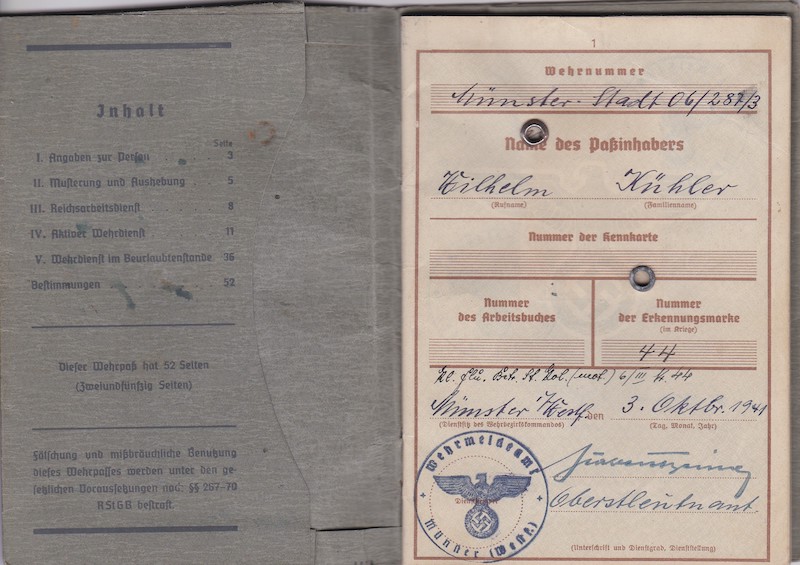 Inhalt
Seite
I. Angaben zur Person . . 3
II. Musterung und Aushebung . 5
III. Reichsarbeitsdienst . . 8
IV. Aktiver Wehrdienst . . 11
V. Wehrdienst im Beurlaubtenstande 36
Bestimmungen . . . 52
Dieser Wehrpaß hat 52 Seiten
(Zweiundfünfzig Seiten)
Fälschung und mißbräuchliche Benutzung
dieses Wehrpasses werden unter den ge-
setzlichen Voraussetzungen nach §§ 267-70
RStGB bestraft.
1
Wehrnummer
Münster-Stadt 06/287/3
Name des Paßinhabers
Wilhelm Kühler
(Rufname) (Familienname)
Nummer der Kennkarte
Nummer
des Arbeitsbuches
Nummer
der Erkennungsmarke
(im Kriege)
44
(mot) 6/III 44
Münster i/Westf. den 3. Oktbr. 1941
(Dienstsitz des Wehrbezirkskommandos) (Tag, Monat, Jahr)
Wehrmeldeamt
Münster (Westf.)
Oberstleutnant
(Unterschrift und Dienstgrad, Dienststellung)